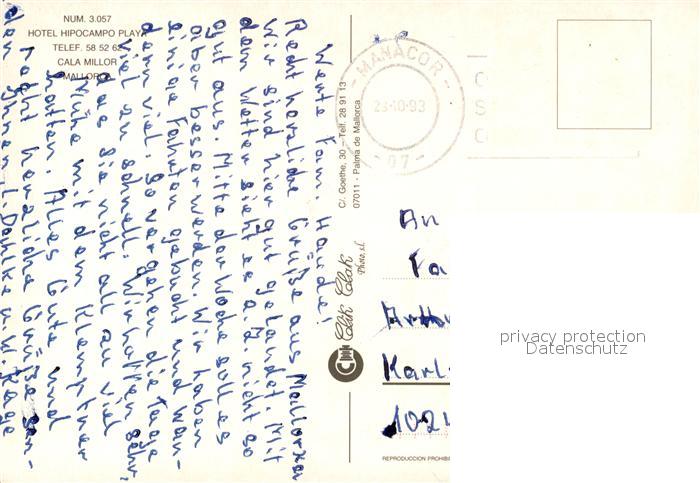 NUM. 3.057
HOTEL HIPOCAMPO PLAYA
TELEF. 58 52 62
CALA MILLOR
MALLORCA
Werte Fam. Haupe!
Recht herzliche Grüße aus Mallorka
Wir sind hier gut gelandet. Mit
dem Wetter sieht es z. Z. nicht so
gut aus. Mitte der Woche soll es
aber besser werden. Wir haben
einige Fahrten gebucht und wan-
dern viel. So vergehen die Tage
viel zu schnell. Wir hoffen sehr,
das Sie nicht all zu viel
Mühe mit dem Klemptner
hatten. Alles Gute und
recht herzliche Grüße sen-
den Ihnen L. Dahlke u. K. Rage
C/. Goethe, 30 – Telf. 28 91 13
07011 - Palma de Mallorca
Clik Clak
Photo, s.l.
MANACOR
23·10·93
07
An
Fa
Arthu
Karl-
1024
REPRODUCCION PROHIB
privacy protection
Datenschutz